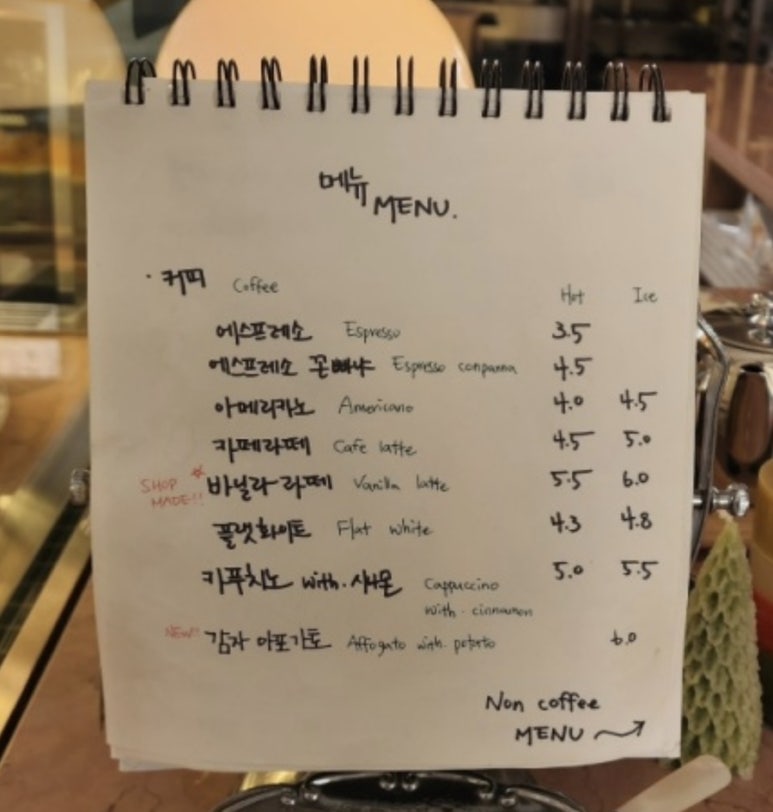 메뉴 MENU.
· 커피 Coffee Hot Ice
에스프레소 Espresso 3.5
에스프레소 꼰빠냐 Espresso conpanna 4.5
아메리카노 Americano 4.0 4.5
카페라떼 Cafe latte 4.5 5.0
SHOP MADE!! 바닐라 라떼 Vanilla latte 5.5 6.0
플랫화이트 Flat white 4.3 4.8
카푸치노 with. 시나몬 Cappuccino 5.0 5.5
with. cinnamon
NEW!! 감자 아포가토 Affogato with. potato 6.0
Non coffee
MENU